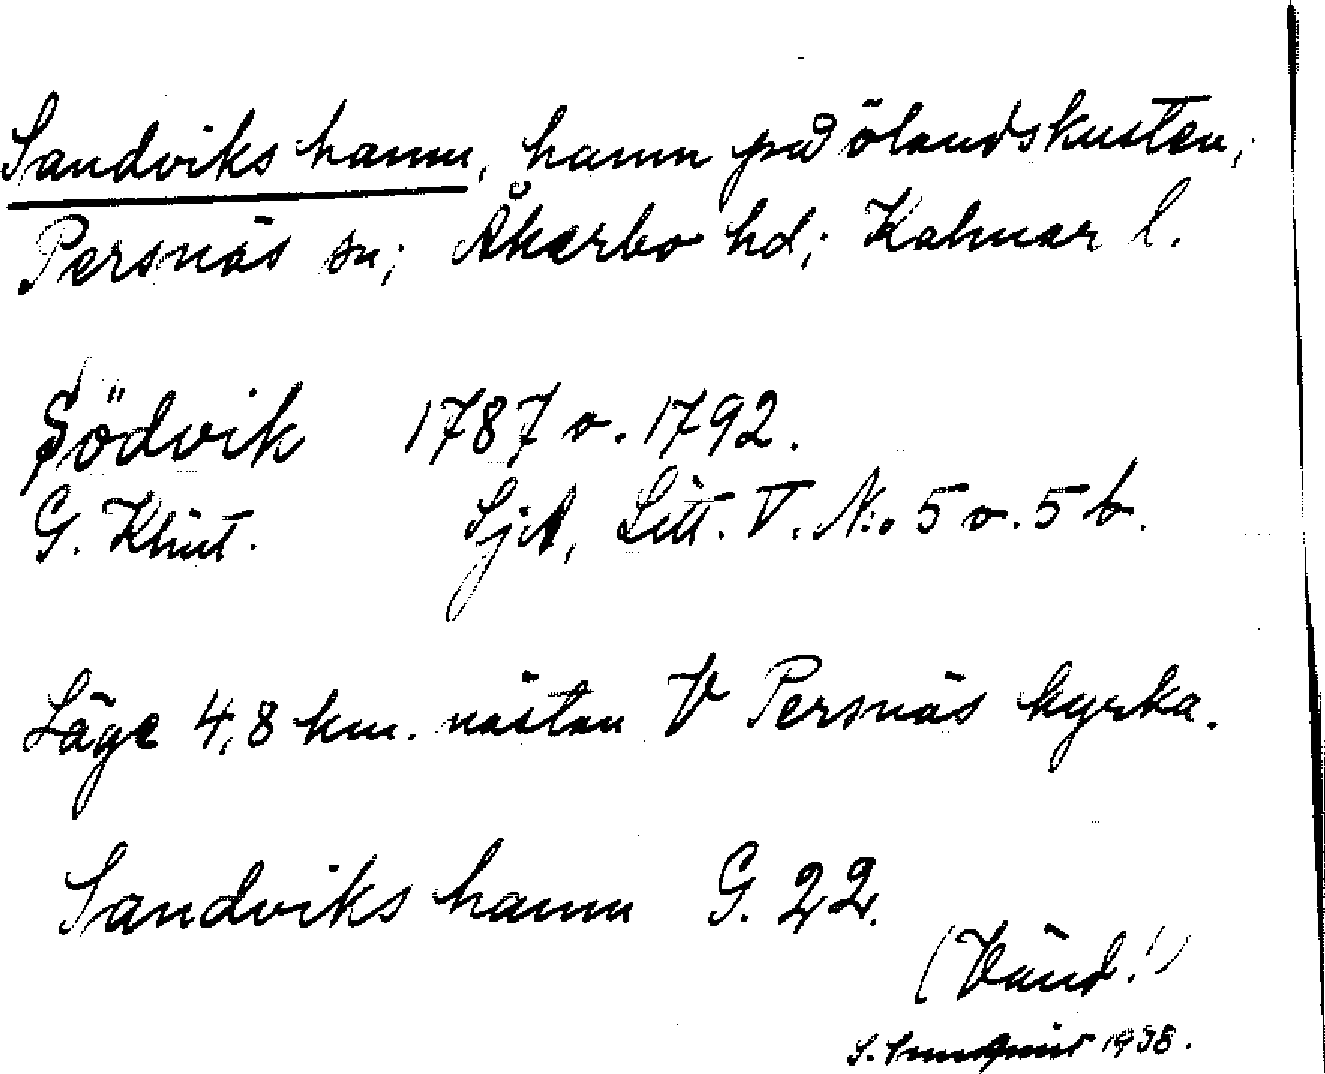 Sandviks hamn, hamn på ölandskusten,
Persnäs sn; Åkerbo hd; Kalmar l.
Södvik 1787 o. 1792.
G. Klint. SjA, Litt. V. No 5 o. 5 b.
Läge 4,8 km. nästan V Persnäs kyrka.
Sandviks hamn G. 22.
(Vänd!)
S. 1938.